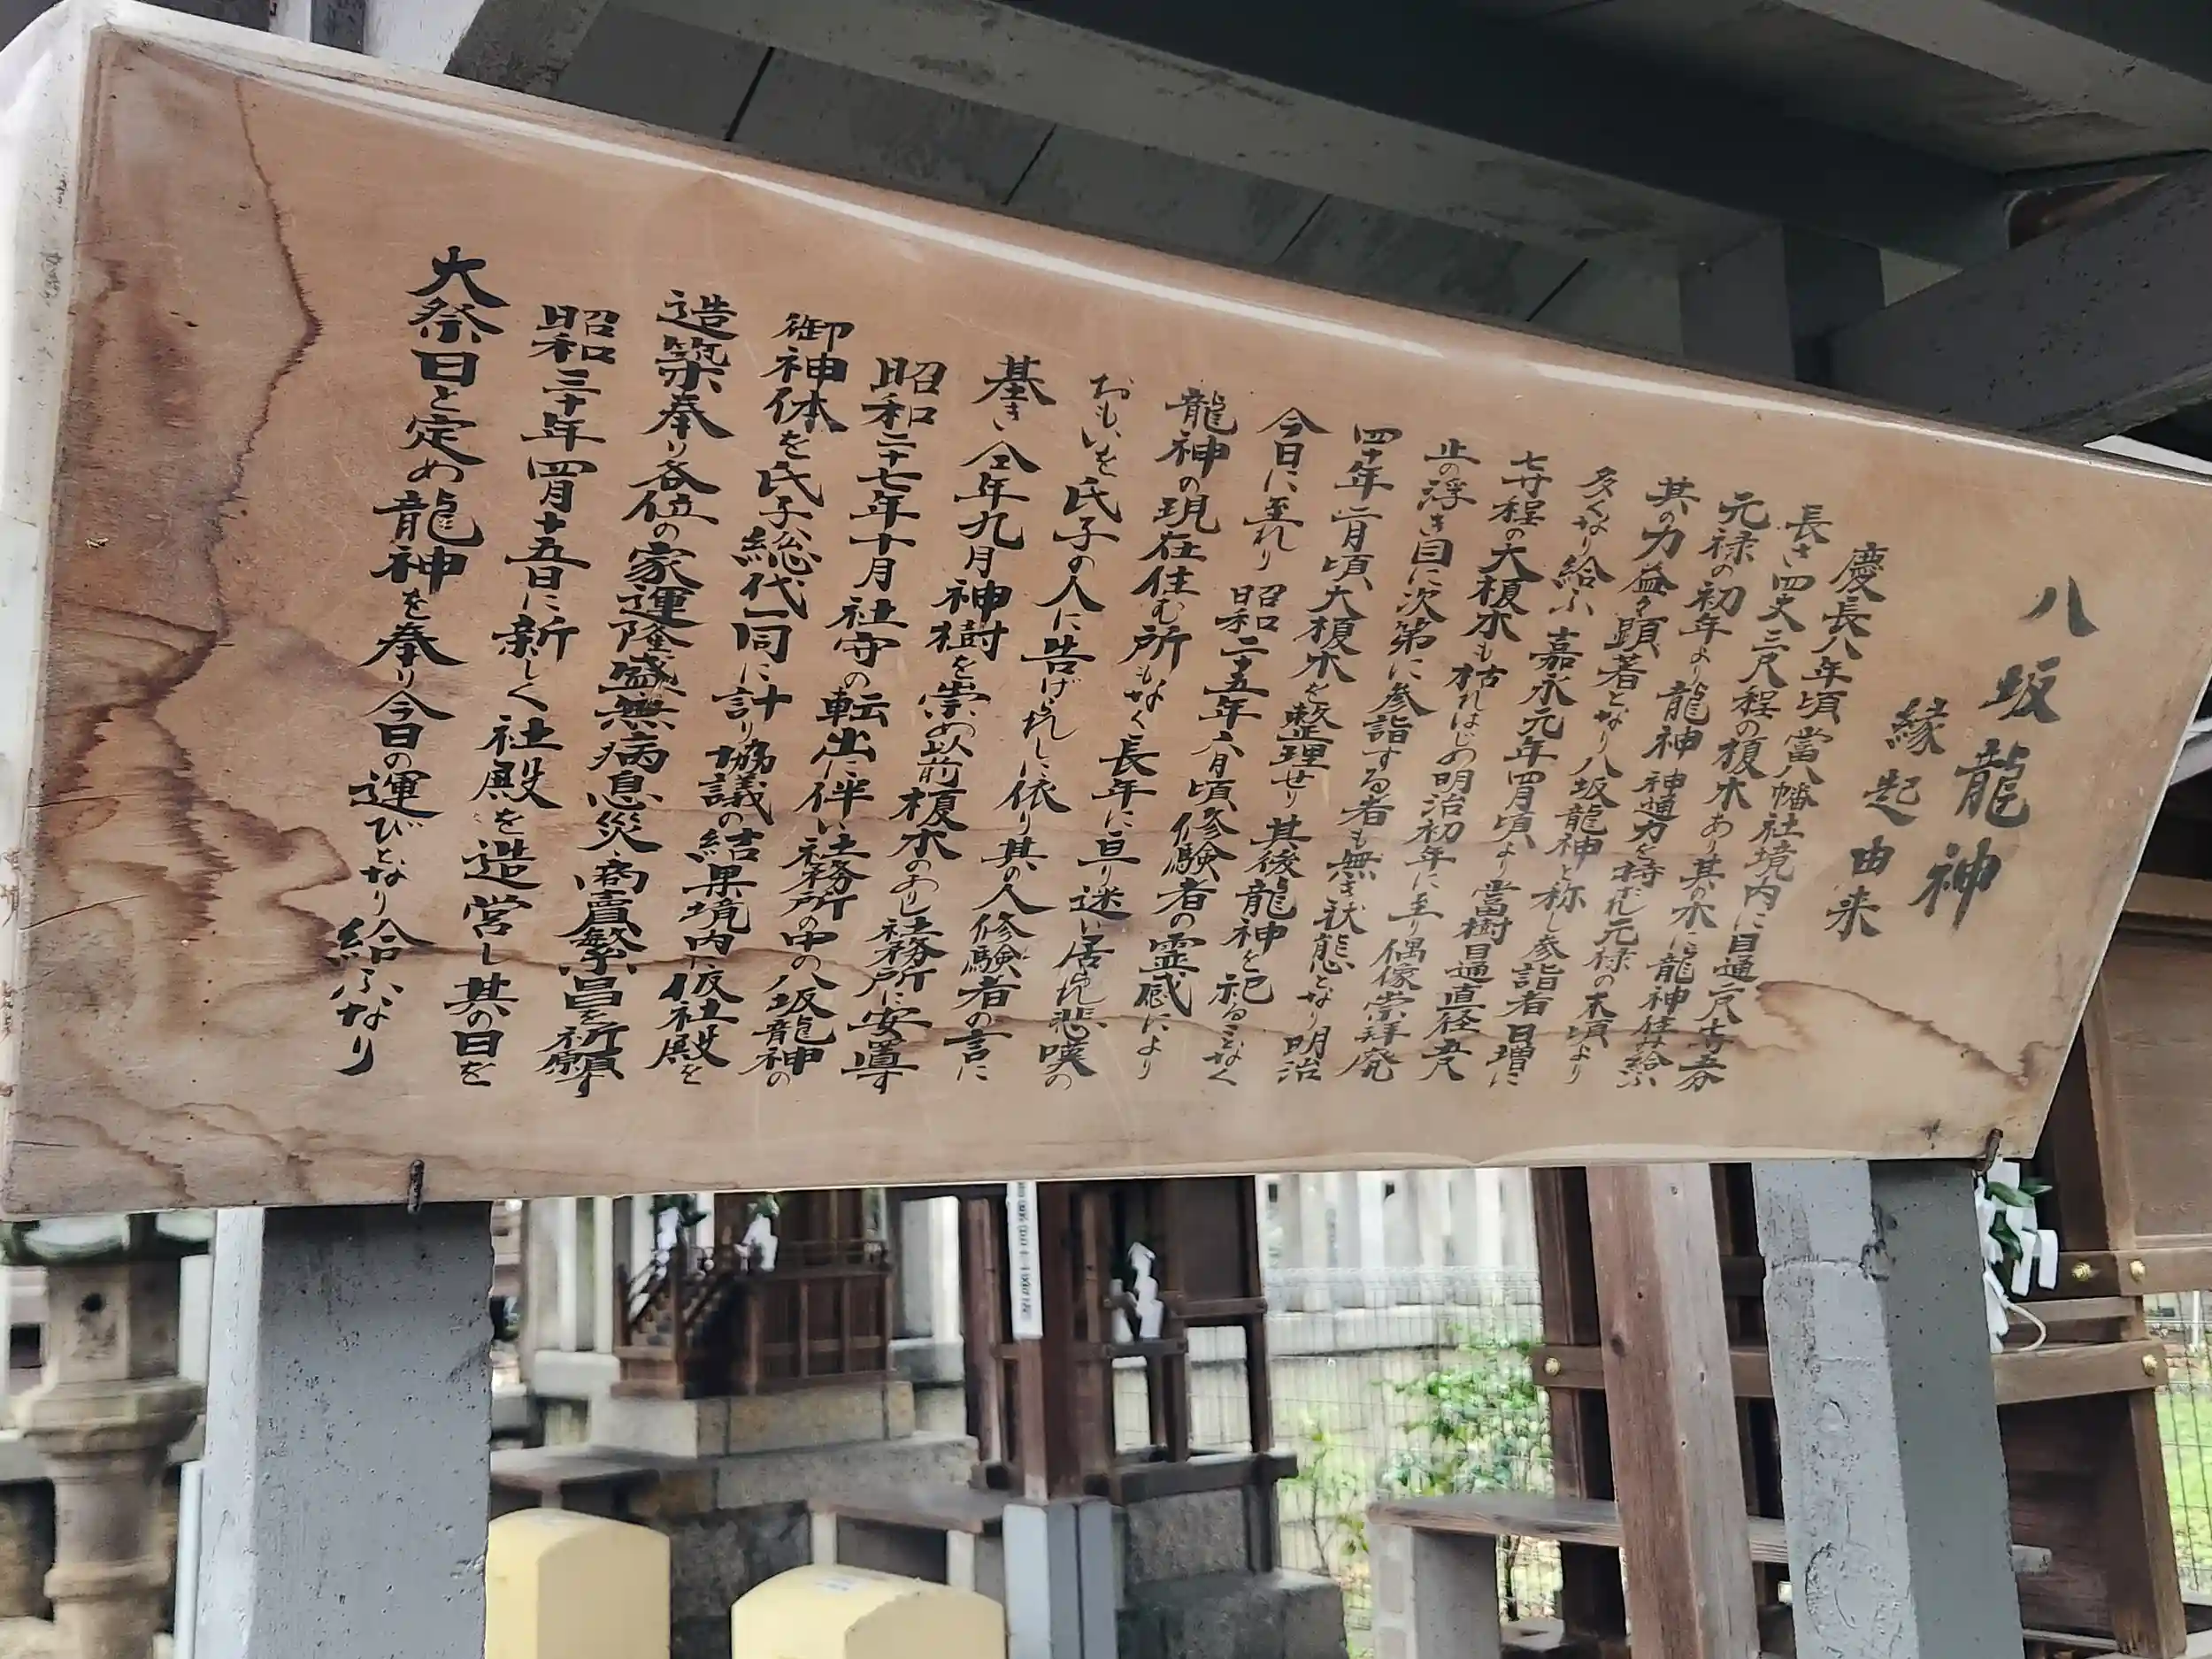 八坂龍神
縁起由来
慶長八年頃當八幡社境内に目通二尺
長さ四丈三尺程の榎木あり其の木に龍神住み給ふ
元禄の初年より龍神神通力を持たれ元禄の末頃より
其の力益々顕著となり八坂龍神と称し参詣者日増に
多くなり給ふ嘉永元年四月頃より當樹目通直径五尺
七寸程の大榎木も枯れはじめ明治初年に至り偶像崇拝発
止の浮き目に次第に参詣する者も無き状態となり明治
四十年二月頃大榎木を整理せり其後龍神を祀ることなく
今日に至れり昭和二十五年六月頃修験者の霊感により
龍神の現在住む所もなく長年に亘り迷い居た悲嘆の
おもいを氏子の人に告げられしに依り其の人修験者の言に
基き仝年九月神樹を崇め以前榎木のありし社務所に安置す
昭和二十七年十月社守の転出に伴い社務所の中の八坂龍神の
御神体を氏子総代一同に計り協議の結果境内に仮社殿を
造築奉り各位の家運隆盛無病息災商賣繁昌を祈願す
昭和三十年四月十五日に新しく社殿を造営し其の日を
大祭日と定め龍神を奉り今日の運びとなり給ふなり